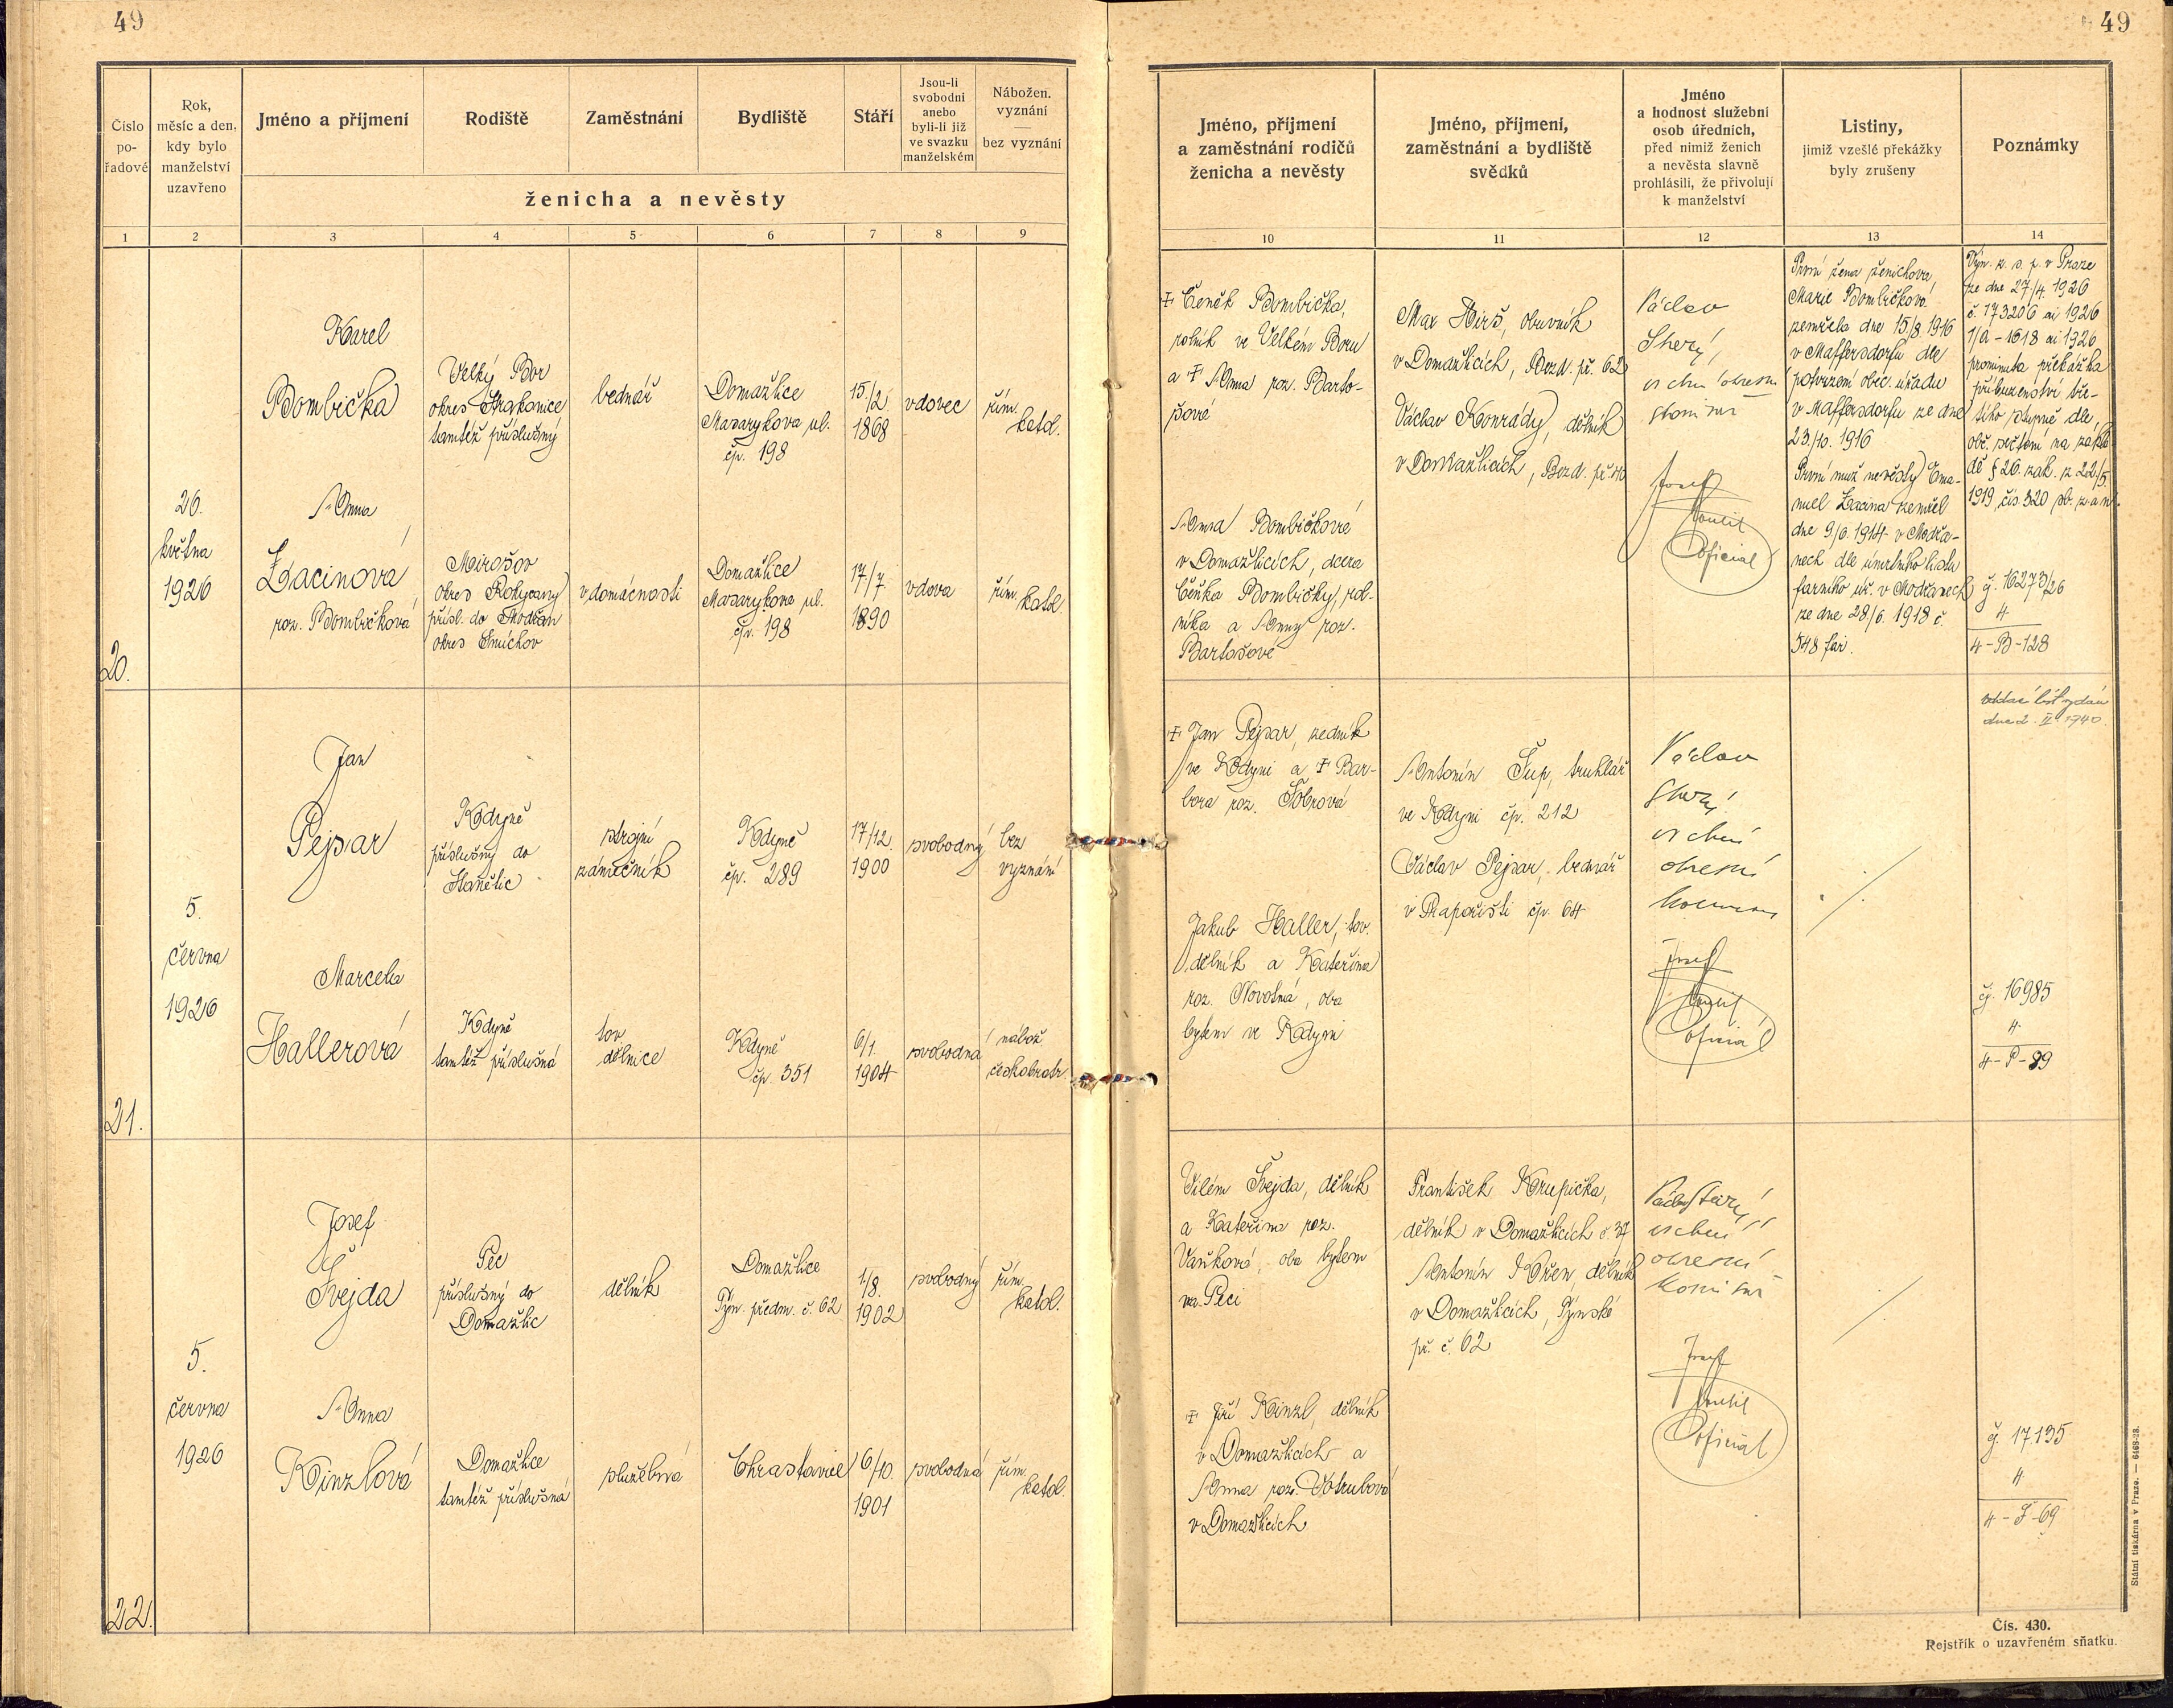 49
49
Číslo
po-
řadové
Rok,
měsíc a den,
kdy bylo
manželství
uzavřeno
Jméno a příjmení
Rodiště
Zaměstnání
Bydliště
Stáří
Jsou-li
svobodni
anebo
byli-li již
ve svazku
manželském
Nábožen.
vyznání
—
bez vyznání
ženicha a nevěsty
Jméno, příjmení
a zaměstnání rodičů
ženicha a nevěsty
Jméno, příjmení,
zaměstnání a bydliště
svědků
Jméno
a hodnost služební
osob úředních,
před nimiž ženich
a nevěsta slavně
prohlásili, že přivolují
k manželství
Listiny,
jimiž vzešlé překážky
byly zrušeny
Poznámky
1
2
3
4
5
6
7
8
9
10
11
12
13
14
20.
26.
května
1926
Karel
Bombička
Velký Bor
okres Strakonice
tamtéž příslušný
bednář
Domažlice
Masarykova ul.
čp. 198
15/2.
1868
vdovec
řím.
katol.
Anna
Žacinová
roz. Bombičková
Mirošov
okres Rokycany
přísl. do Modřan
okres Smíchov
v domácnosti
Domažlice
Masarykova ul.
čp. 198
17/7.
1890
vdova
řím.
katol.
☨ Čeněk Bombička,
rolník ve Velkém Boru
a ☨ Anna roz. Barto-
šové
Anna Bombičkové
v Domažlicích, dcera
Čeňka Bombičky, rol-
níka a Anny roz.
Bartošové
Max Hirš, obuvník
v Domažlicích, Bezd. př. 62
Václav Konrády, dělník
v Domažlicích, Bezd. př.
Václav
Josef
oficial
První žena ženichova,
Marie Bombičková
zemřela dne 15./8. 1916
v Maffersdorfu dle
potvrzení obec. úřadu
v Maffersdorfu ze dne
23./10. 1916
První muž nevěsty Ema-
nuel Žacina zemřel
dne 9/6. 1914 v Modřa-
nech dle úmrtního listu
farního úř. v Modřanech
ze dne 28./6. 1918 č.
548 far.
Výn. z. s. p. v Praze
ze dne 27/4. 1926
č. 173206 ai 1926
1/a - 1618 ai 1926
prominuta překážka
příbuzenství tře-
tího stupně dle
obč. sečtení na zákla-
dě § 26. zák. z 22./5.
1919 čís. 320 sb. z. a n.
čj. 16273/26
4
4-B-128
21.
5.
června
1926
Jan
Pejsar
Kdyně
příslušný do
Hanělic
strojní
zámečník
Kdyně
čp. 289
17/12.
1900
svobodný
bez
vyznání
Marcela
Hallerová
Kdyně
tamtéž příslušná
tov.
dělnice
Kdyně
čp. 351
6/1.
1904
svobodná
nábož.
českobratr.
☨ Jan Pejsar, zedník
ve Kdyni a ☨ Bar-
bora roz.
Jakub Haller, tov.
dělník a Kateřina
roz. Novotná, oba
bytem ve Kdyni
Antonín Šup, truhlář
ve Kdyni čp. 212
Václav Pejsar, bednář
v Zahořišti čp. 64
Václav
okresní
Josef
oficiál
oddac list vydán
dne 2. II. 1940.
čj. 16985
4
4-P-89
22.
5.
června
1926
Josef
Švejda
Pec
příslušný do
Domažlic
dělník
Domažlice
Týn. předm. č. 62
1/8.
1902
svobodný
řím.
katol.
Anna
Kinzlová
Domažlice
tamtéž příslušná
služebná
Chrastavice
6/10.
1901
svobodná
řím.
katol.
Vilém Švejda, dělník
a Kateřina roz.
Vaňková, oba bytem
na Peci
☨ Jiří Kinzl, dělník
v Domažlicích a
Anna roz. Votrubová
v Domažlicích
František Krupička,
dělník v Domažlicích č. 37
Antonín Kořen, dělník
v Domažlicích, Týnské
př. č. 62
Václav Starý,
okresní
komisař
Josef
oficiál
čj. 17.135
4
4-Š-69
Státní tiskárna v Praze. — 6468-28.
Čís. 430.
Rejstřík o uzavřeném sňatku.